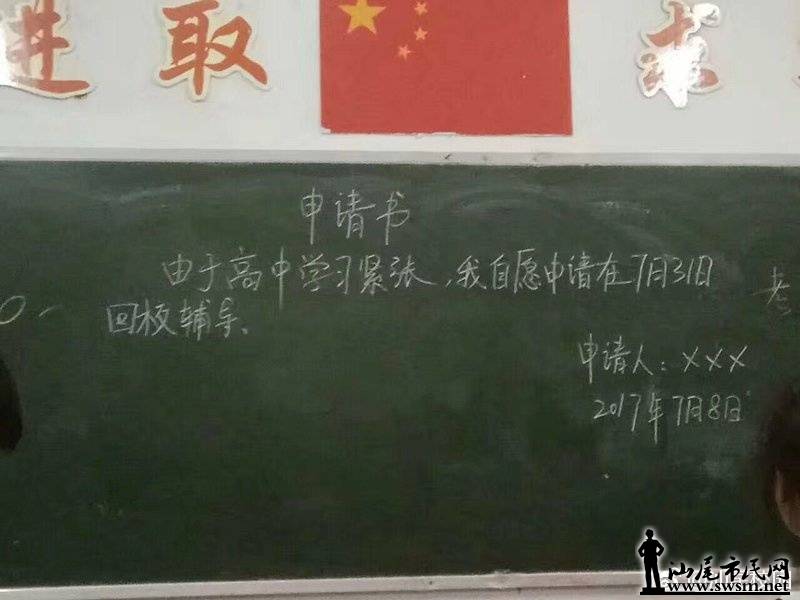 进取 求
申请书
由于高中学习紧张,我自愿申请在7月31日
回校辅导。
申请人:×××
2017年7月8日
汕尾市民网
www.swsm.net